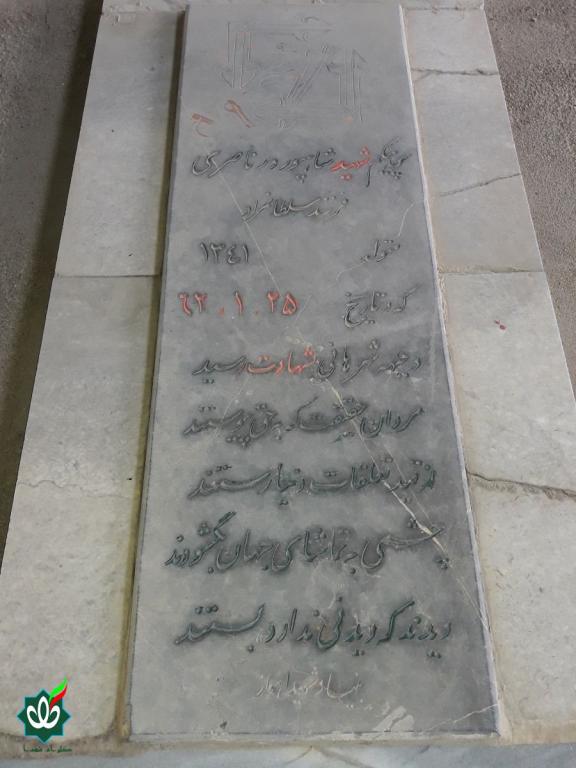 ۶۹
پیکر شهید شاپور در ناصری
فرزند سلطانمراد
متولد ۱۳٤۱
که در تاریخ ۶۲.۱.۲۵
در جبهه شرهانی بشهادت رسید
مردان حقیقت که بحق پیوستند
از قید تعلقات دنیا رستند
چشمی به تماشای جهان بگشودند
دیدند که دیدنی ندارد بستند
بنیاد شهید اهواز